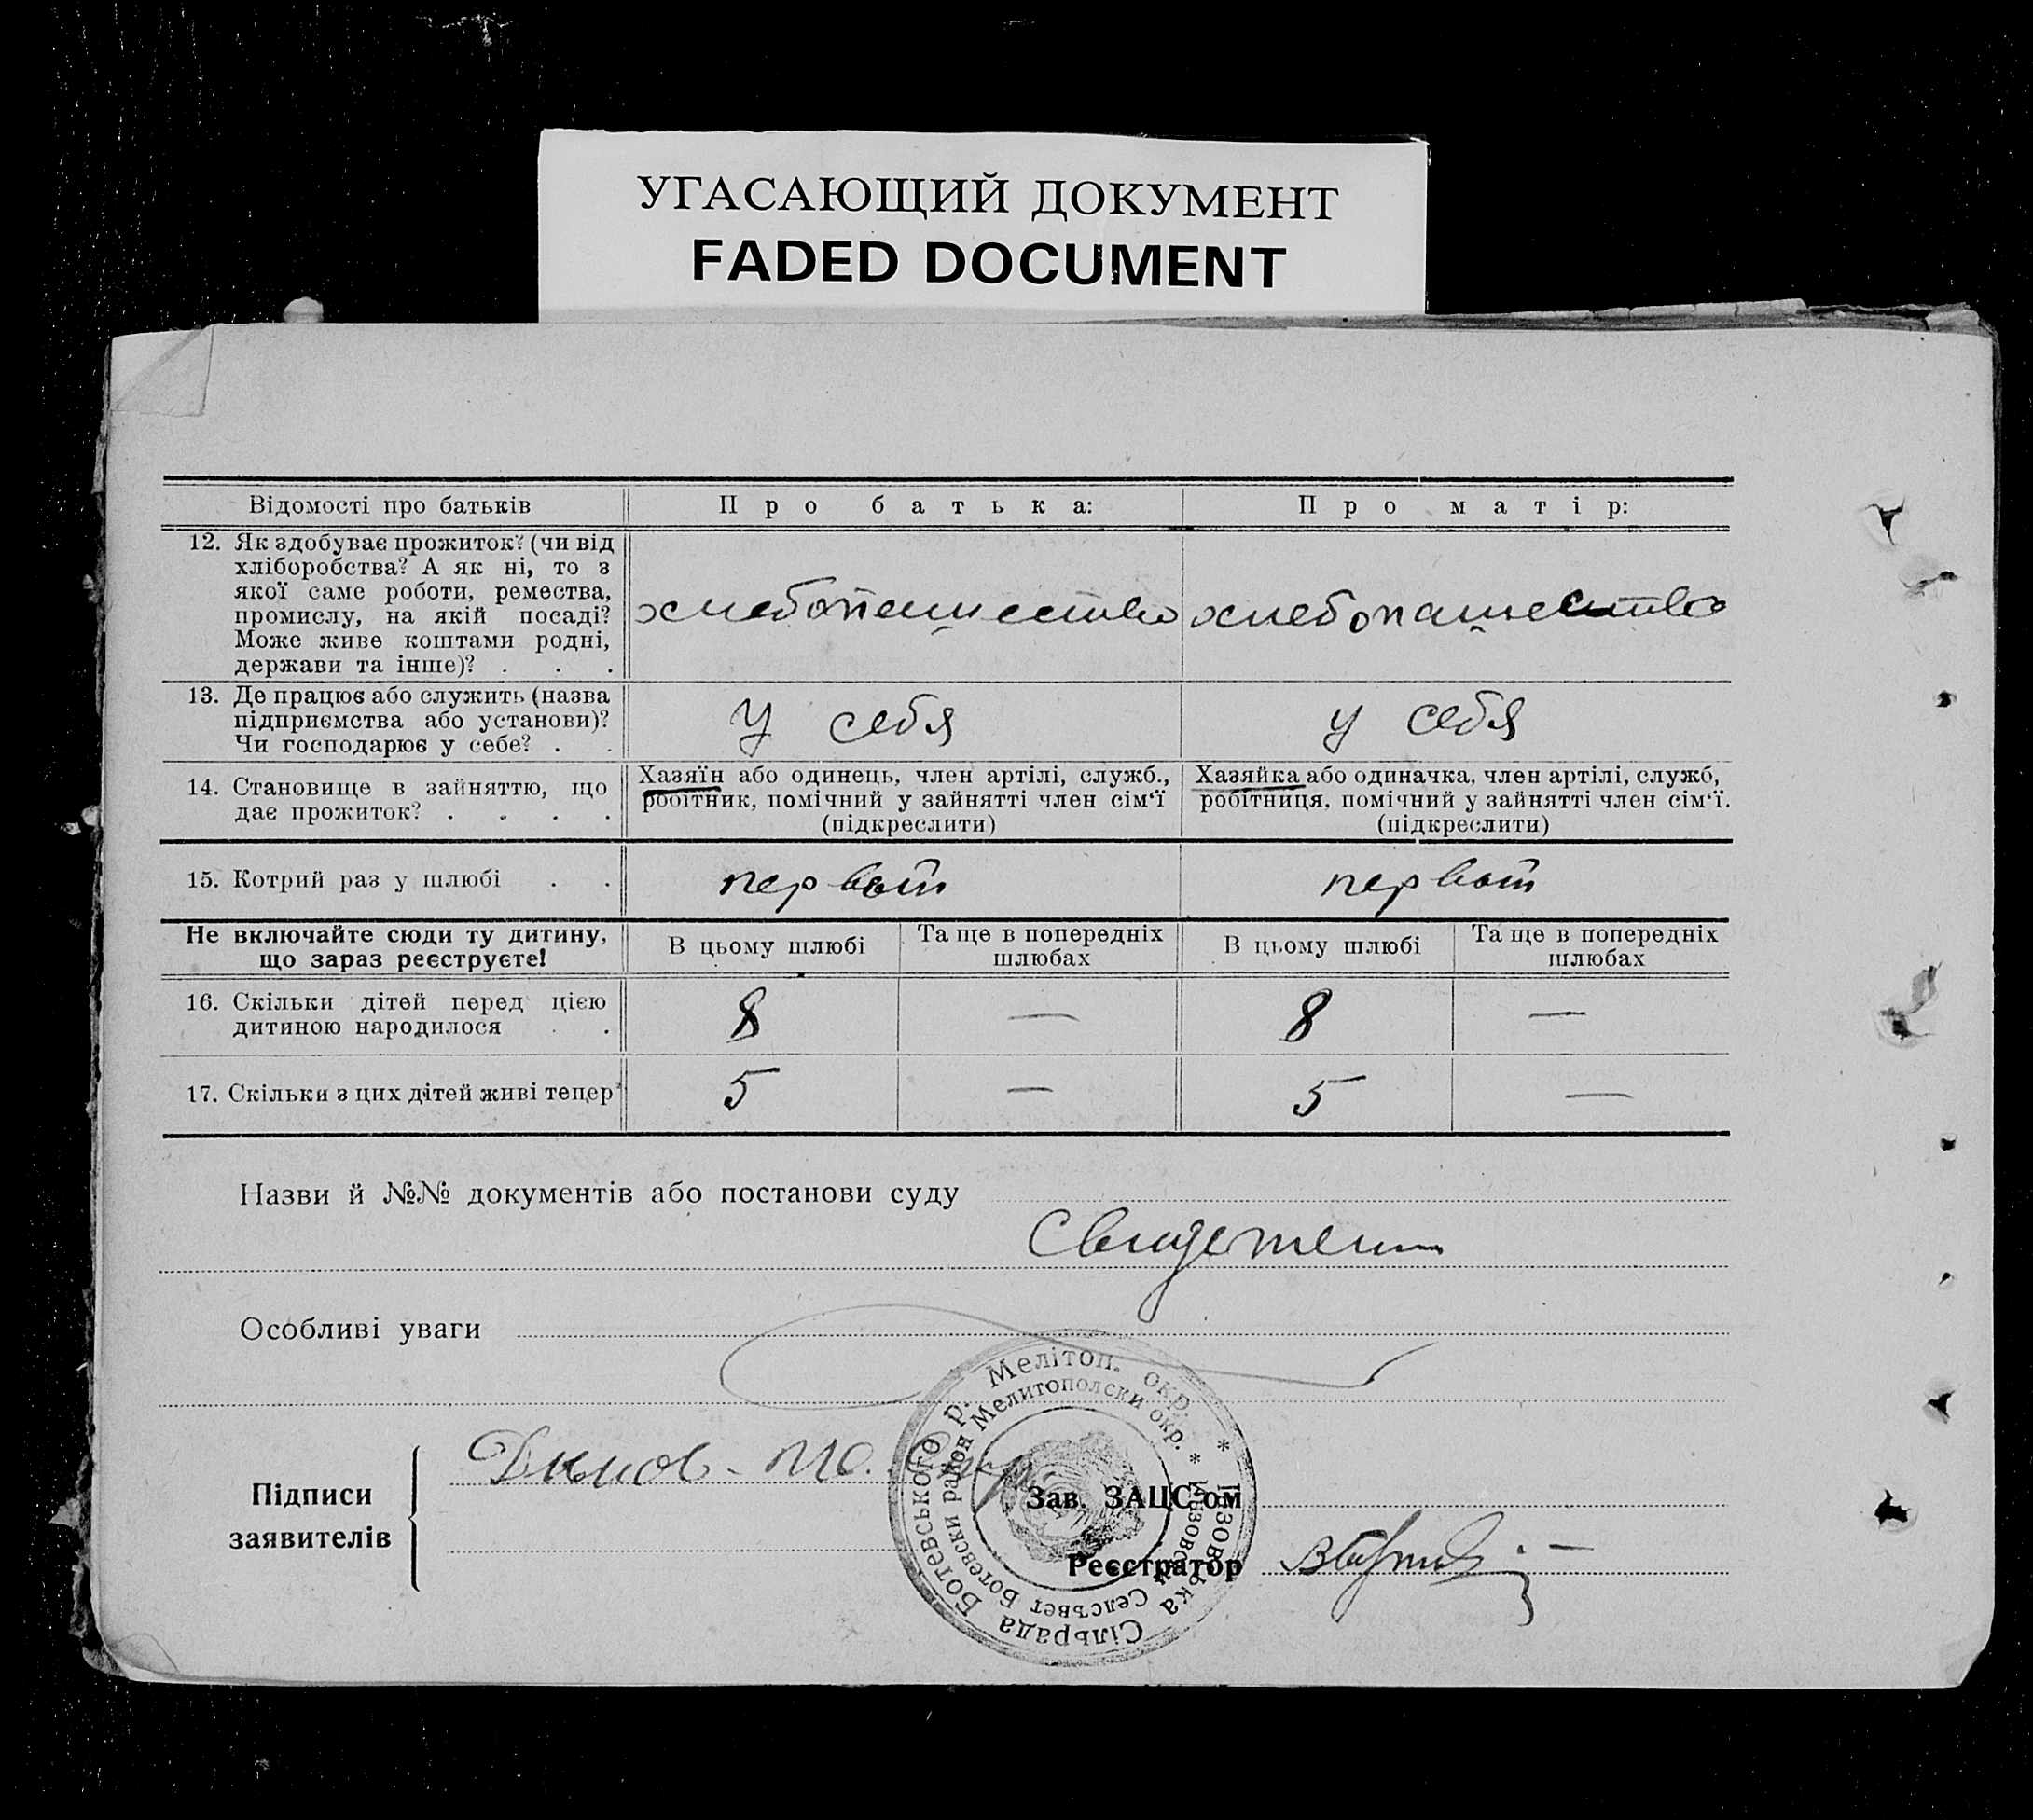 УГАСАЮЩИЙ ДОКУМЕНТ
FADED DOCUMENT
Відомості про батьків
Про батька:
Про матір:
12. Як здобуває прожиток? (чи від
хліборобства? А як ні, то з
якої саме роботи, ремества,
промислу, на якій посаді?
Може живе коштами родні,
держави та інше)? . . .
хлебопашество
хлебопашество
13. Де працює або служить (назва
підприємства або установи)?
Чи господарює у себе? . .
У себя
у себя
14. Становище в зайняттю, що
дає прожиток? . . . .
Хазяїн або одинець, член артілі, служб.,
робітник, помічний у зайнятті член сім‘ї
(підкреслити)
Хазяйка або одиначка, член артілі, служб,
робітниця, помічний у зайнятті член сім‘ї.
(підкреслити)
15. Котрий раз у шлюбі . .
первый
первый
Не включайте сюди ту дитину,
що зараз реєструєте!
В цьому шлюбі
Та ще в попередніх
шлюбах
В цьому шлюбі
Та ще в попередніх
шлюбах
16. Скільки дітей перед цією
дитиною народилося . .
8
—
8
—
17. Скільки з цих дітей живі тепер?
5
—
5
—
Назви й №№ документів або постанови суду
Свидетели
Особливі уваги
Підписи
заявителів
Зав. ЗАЦС'ом
Реєстратор
Сільрада Ботевського р. Мелітоп. окр. *
Селсъвет Ботевски район Мелитополски окр. *